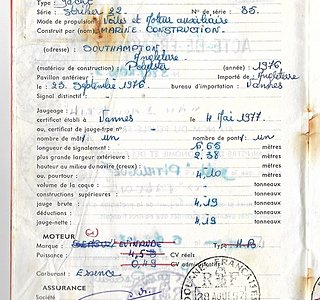 Type : Yacht
Série : Striker 22. N° de série : 35.
Mode de propulsion : Voiles et Moteur auxiliaire
Construit par (nom) : MARINE CONSTRUCTION.
(adresse) : SOUTHAMPTON
Angleterre
(matériau de construction) : Polyester (année) : 1976
Pavillon antérieur Importé de Angleterre
le : 23 Septembre 1976. bureau d'importation : Vannes
Signal distinctif :
Jaugeage :
certificat établi à Vannes le 4 Mai 1977.
ou, certificat de jauge-type n°
nombre de mâts : un nombre de ponts : un
longueur de signalement : 6,66 mètres
plus grande largeur extérieure : 2,38 mètres
hauteur au milieu du navire (creux) mètres
ou, pourtour : 4,10 mètres
volume de la coque : tonneaux
constructions supérieures : tonneaux
jauge brute : 4,19 tonneaux
déductions : tonneaux
jauge-nette : 4,19 tonneaux
MOTEUR
Marque : EVINRUDE Type : H-B.
Puissance : 4,58 CV réels
0,49 CV admin
Carburant : Essence
ASSURANCE
Société
DOUANE FRANÇAISE
AOUT